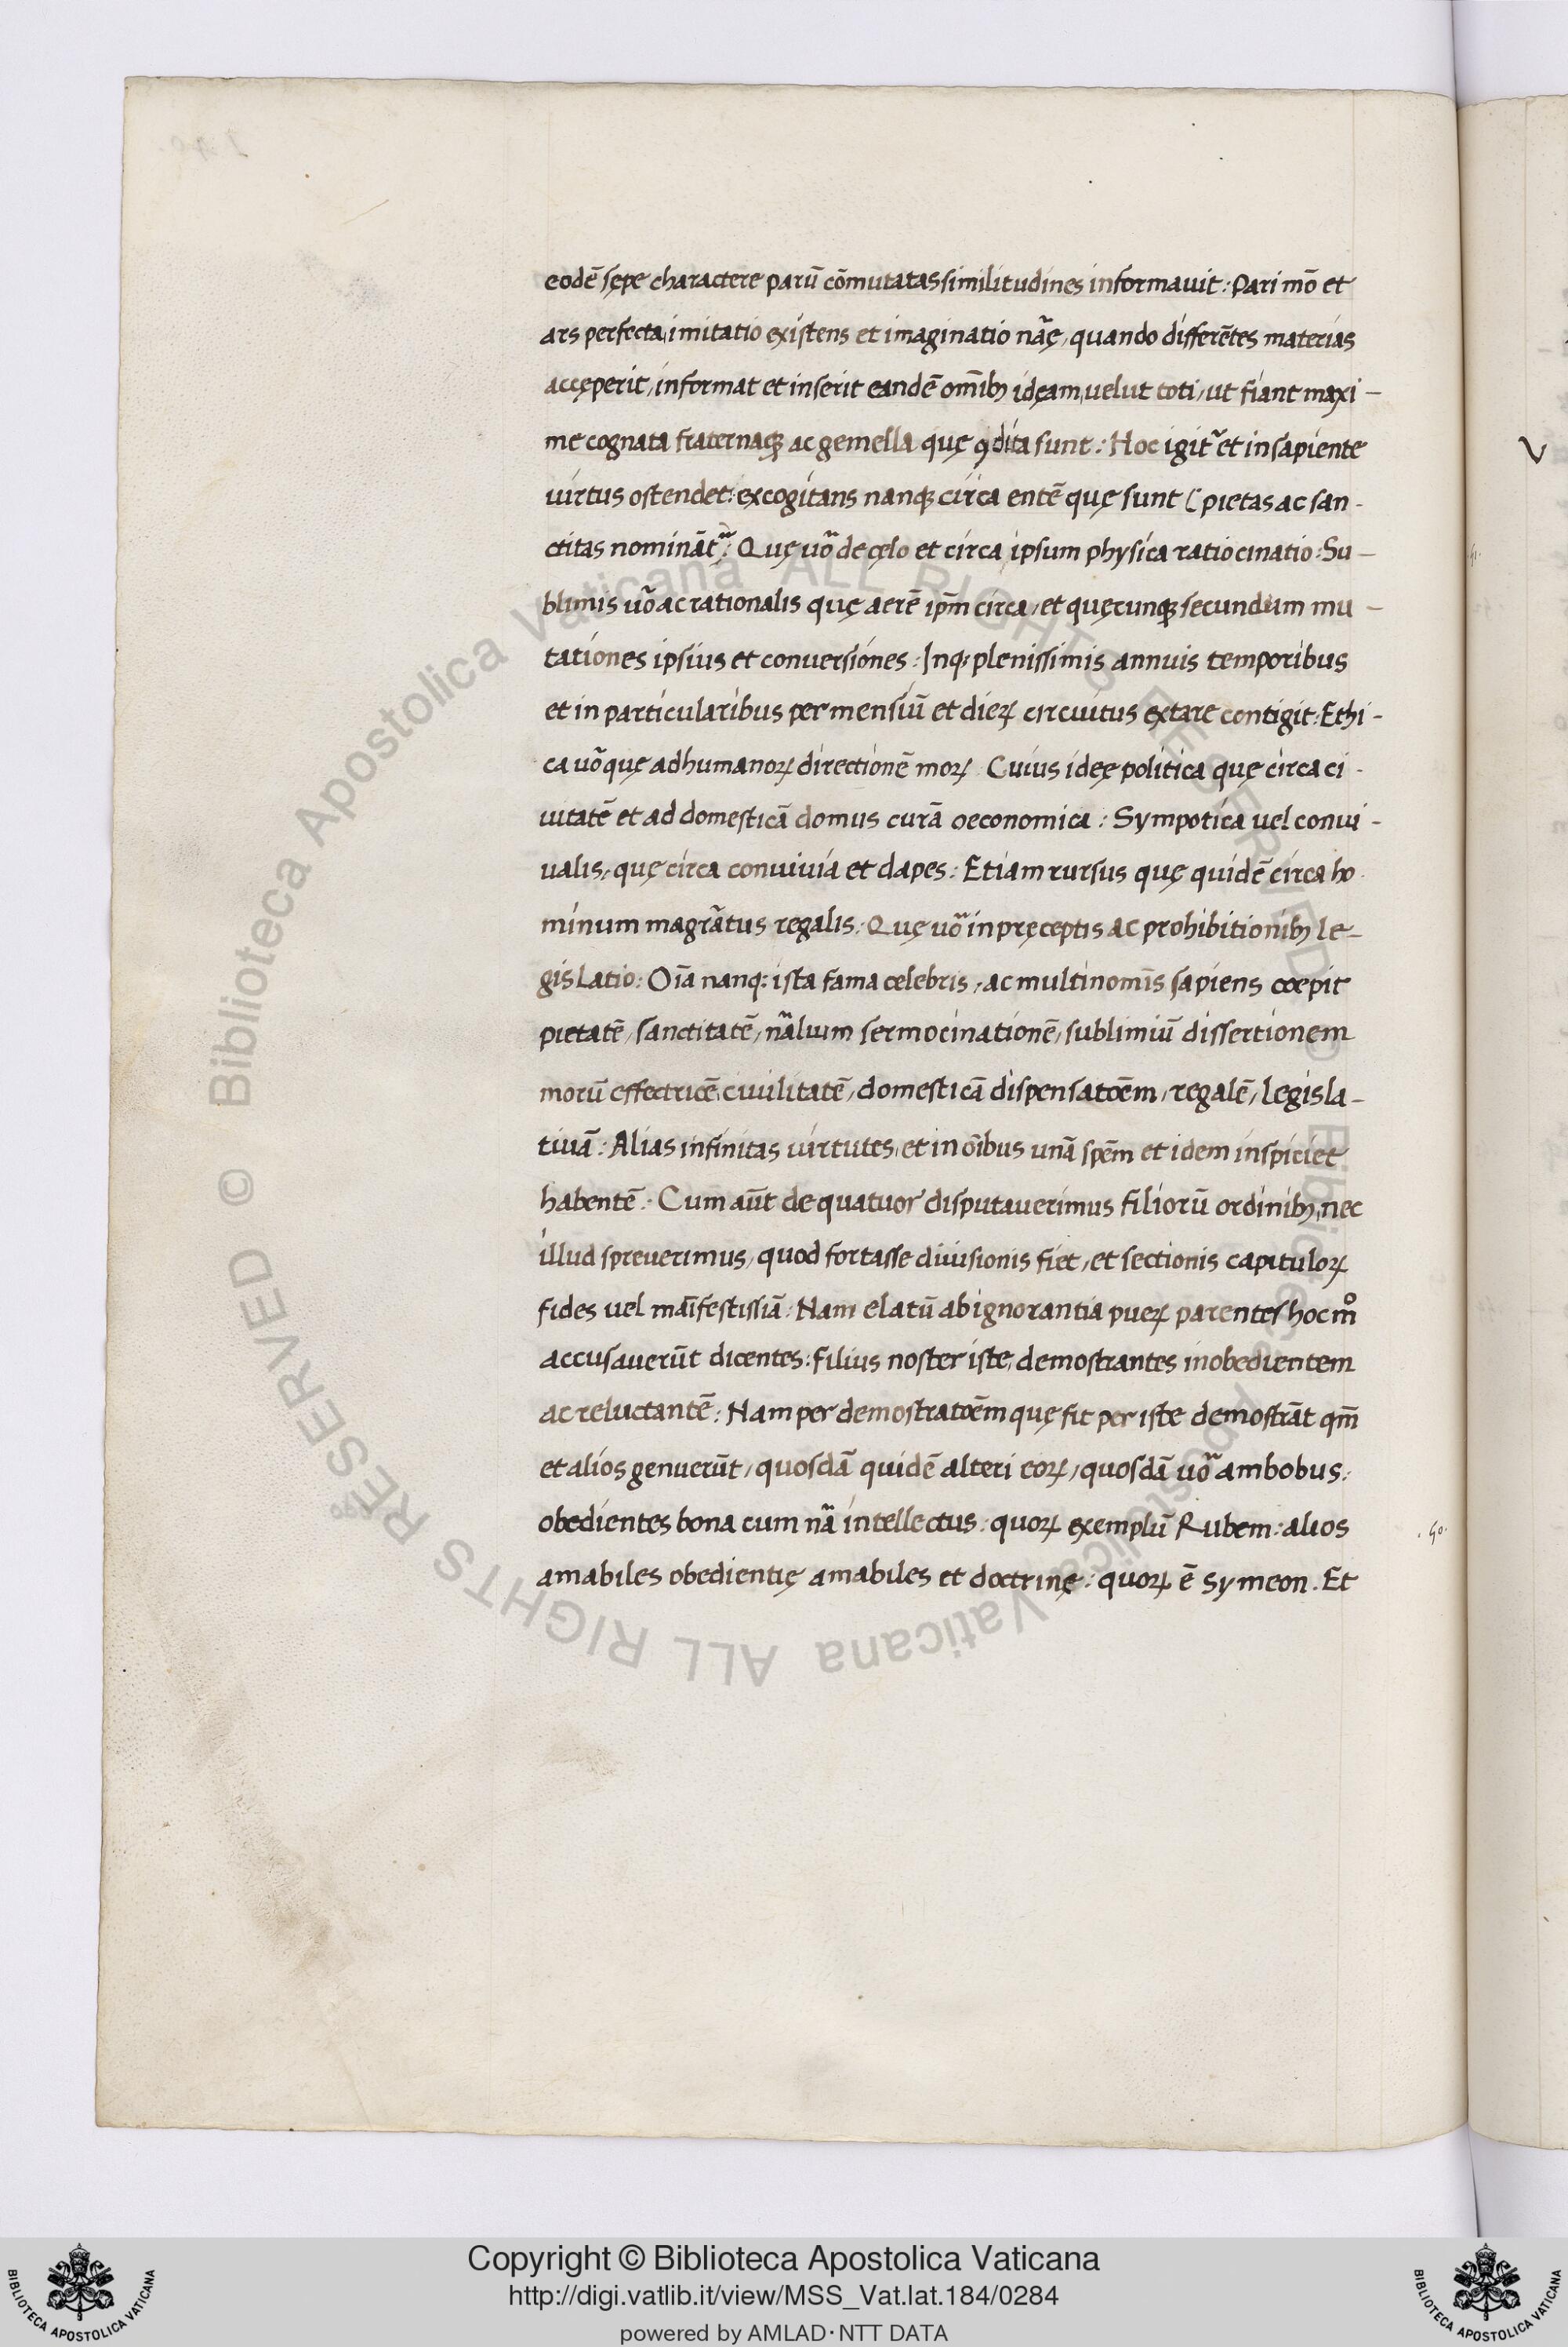 eodē sępe charactere parū cōmutatas similitudines informauit : Pari mō et
ars perfecta, imitatio existens et imaginatio nãę, quando differētes materias
accęperit, informat et inserit eandē om̄ib; idęam, uelut toti, ut fiant maxi-
me cognata fraternaq; ac gemella quę ꝯdita sunt : Hoc igit᷑ et in sapiente
uirtus ostendet : excogitans nanq; circa entē quę sunt ( pietas ac san-
ctitas nominãt᷑ : Quę uõ de cęlo et circa ipsum physica ratiocinatio : Su-
blimis uõ ac rationalis quę aerē ip̄m circa, et quęcunq; secundum mu-
tationes ipsius et conuersiones : Inq; plenissimis annuis temporibus
et in particularibus per mensiū et dieꝝ circuitus extare contigit : Ethi-
ca uõ quę ad humanoꝝ directionē moꝝ Cuius idęę politica quę circa ci-
uitatē et ad domesticã domus curã oeconomica : Sympotica uel conui-
ualis, quę circa conuiuia et dapes : Etiam rursus quę quidē circa ho-
minum magr̃atus regalis : Quę uõ in pręceptis ac prohibitionib; le-
gislatio : Oīa nanq; ista fama celebris, ac multinomīs sapiens coepit
pietatē, sanctitatē, nãlium sermocinationē, sublimiū dissertionem
morū effectricē, ciuilitatē, domesticã dispensatōem, regalē, legisla-
tiuã : Alias infinitas uirtutes, et in oībus unã spēm et idem inspiciet
habentē : Cum aūt de quatuor disputauerimus filiorū ordinib;, nec
illud spreuerimus, quod fortasse diuisionis fiet, et sectionis capituloꝝ
fides uel maīfestissiã : Nam elatū ab ignorantia pueꝝ parentes hoc m̊
accusauerūt dicentes : filius noster iste, demostrantes inobedientem
ac reluctantē : Nam per demostratōem quę fit per iste demostrãt qm̄
et alios genuerūt, quosdã quidē alteri eoꝝ, quosdã uõ ambobus :
obedientes bona cum nã intellectus : quoꝝ exemplū Rubem : alios
amabiles obedientię amabiles et doctrinę : quoꝝ ē Symeon . Et
Copyright © Biblioteca Apostolica Vaticana
http://digi.vatlib.it/view/MSS_Vat.lat.184/0284
powered by AMLAD·NTT DATA
BIBLIOTECA APOSTOLICA VATICANA
BIBLIOTECA APOSTOLICA VATICANA
© Biblioteca Apostolica Vaticana ALL RIGHTS RESERVED
© Biblioteca Apostolica Vaticana ALL RIGHTS RESERVED